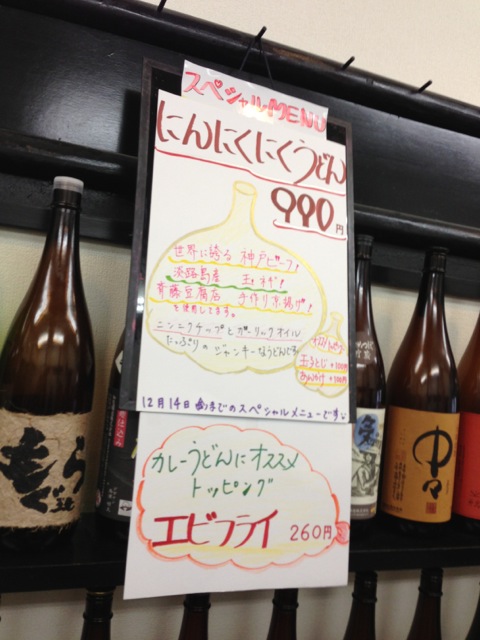 スペシャルMENU
にんにくにくうどん
990円
世界に誇る 神戸ビーフ!
淡路島産 玉ネギ!
斉藤豆腐店 手作り京揚げ!
を使用してます。
ニンニクチップとガーリックオイル
たっぷりの ジャンキーなうどんです
玉子とじ +100円
あんかけ +100円
12月14日(金)までのスペシャルメニューですぃ
カレーうどんにオススメ
トッピング
エビフライ 260円
もぐら
中々